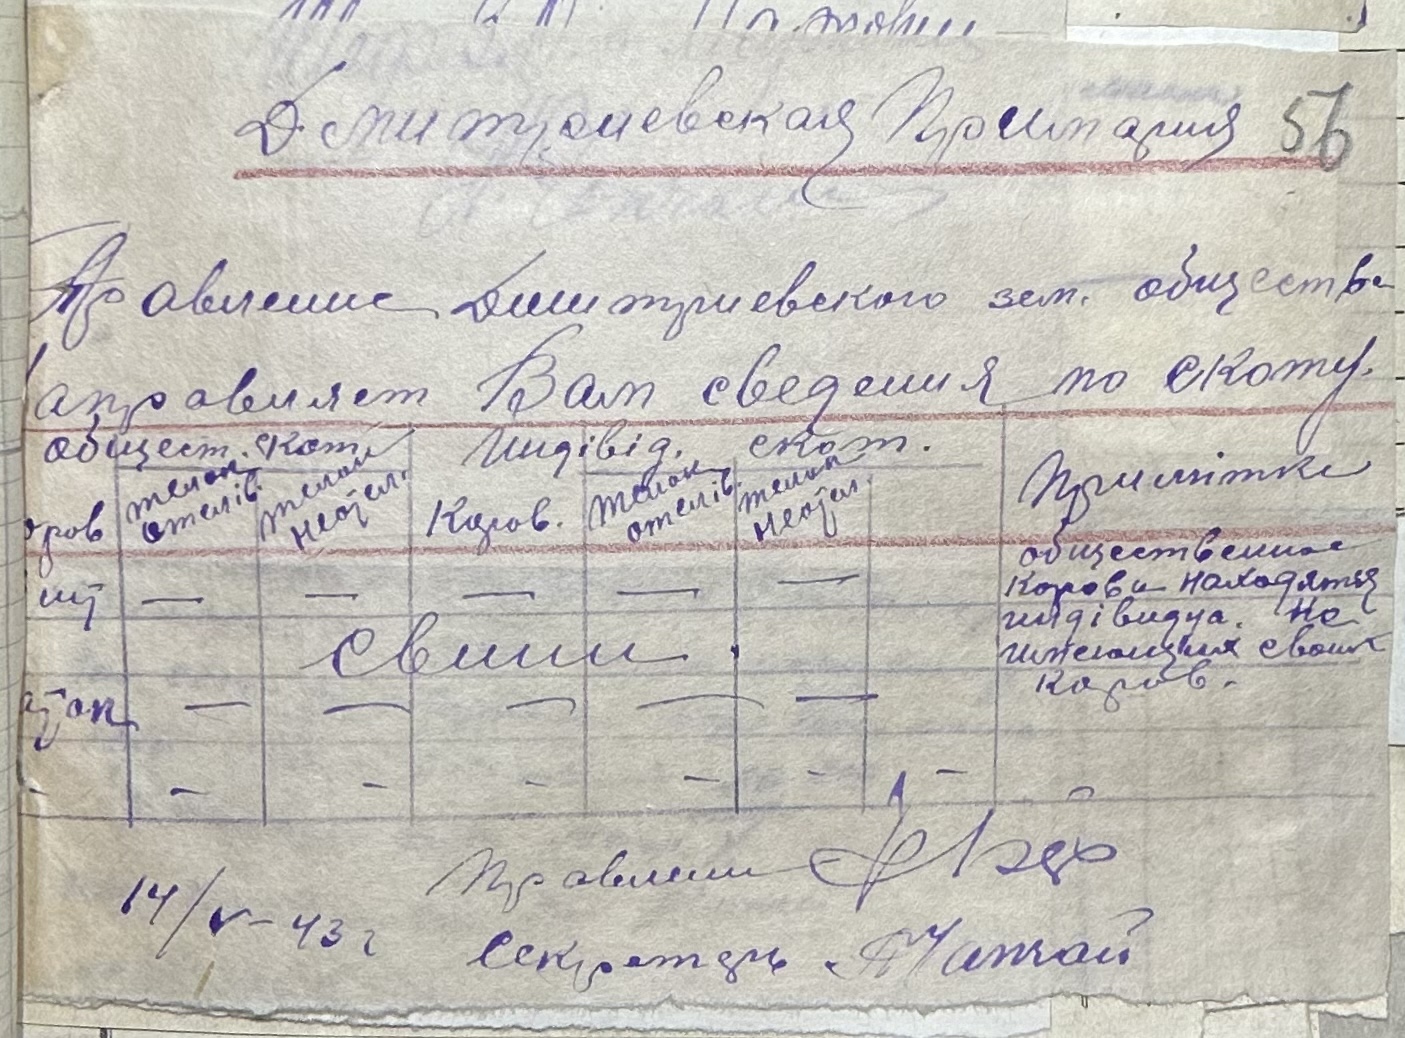 Дмитриевская Примария 56
Правление Дмитриевского зем. общества
направляет Вам сведения по скоту.
общест. скот. Индівід. скот. Примітка
оров телок отелів. телок неотел. Коров. телок отелів. телок неотел.
общественные
шт — — — — — коровы находятся
индівидуа. не
свини имеющих своих
коров.
— — — — —
- - - - - -
Правлении
14/V-43 г
Секретарь